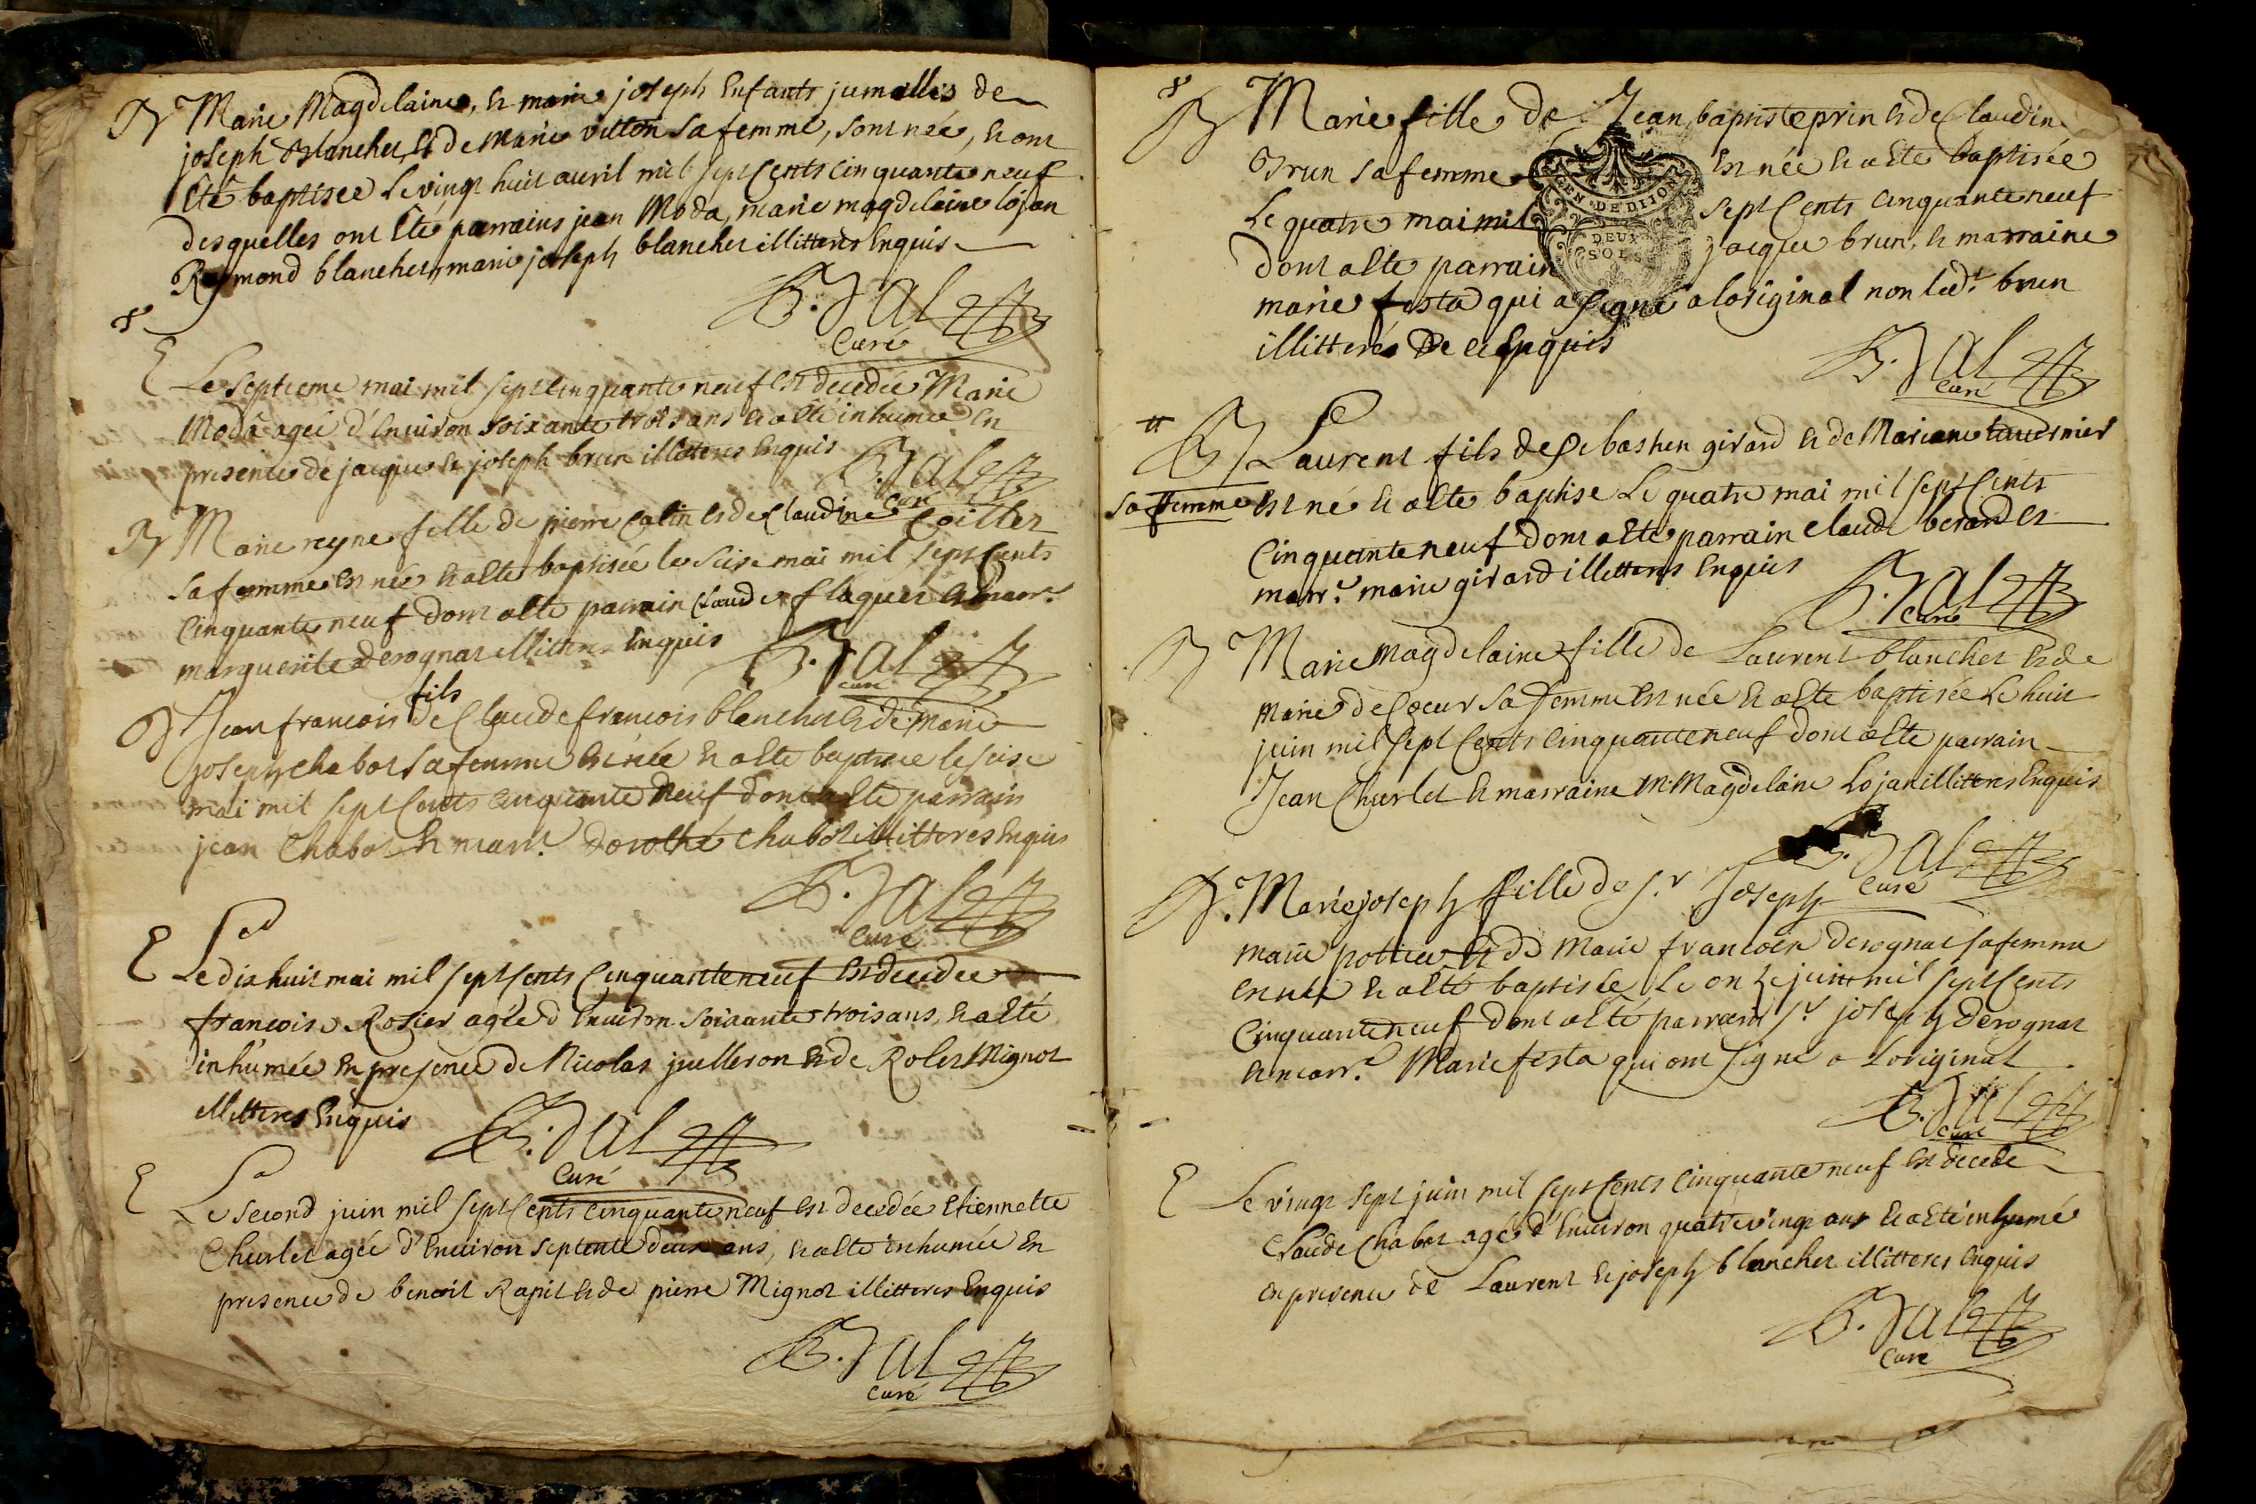 B Marie Magdelaine, et marie joseph Enfants jumelles de
joseph Blanchet, et de Marie vitton sa femme, sont née, et ont
Eté baptisee Le vingt huit auril mil sept Cents Cinquante neuf
desquelles ont Eté parrains jean Moda, marie magdelaine lojan
Raymond blanchet, marie joseph blanchet illitteres Enquis
B. Jal
Curé
E Le septieme mai mil sept Cinquante neuf est decedée Marie
Moda agée d'Enuiron soixante trois ans et a été inhumée En
presence de jacque et joseph brun illitteres Enquis
B. Jal
Curé
B Marie reyne fille de pierre Colin et de Claudine Coiller
sa femme est née et a Eté baptisée le seise mai mil sept Cents
Cinquante neuf dont a Eté parrain Claude flaquet et marr.e
marguerite derognat illitteres Enquis
B. Jal
curé
fils
B Jean francois de Claude francois blanchet et de Marie
joseph chabot sa femme est née et a Eté baptisee le seise
mai mil sept Cents Cinquante Neuf dont a Eté parrain
jean Chabot et marr.e dorothé Chabot illitteres Enquis
B. Jal
Curé
E Le dix huit mai mil sept Cents Cinquante neuf est decedee
francoise Rosier agée d'Enuiron soixante trois ans, et a Eté
inhumée en presence de Nicolas juilleron et de Rolet Mignot
illitteres Enquis
B. Jal
Curé
E Le second juin mil sept Cents Cinquante neuf est decedée Etiennette
Churlet agée d'Enuiron septente deux ans, et a Eté inhumée En
presence de benoit Rapit et de pierre Mignot illitteres Enquis
B. Jal
Curé
B Marie fille de Jean baptiste prin et de Claudine
Brun sa femme Est née et a Eté baptisée
Le quatre mai mil sept Cents Cinquante neuf
dont a Eté parrain jacque brun, et marraine
marie festa qui a signé a loriginal non led.t brun
illitteré de ce Enquis
GEN DE DIJON
DEUX
SOLS
B. Jal
Curé
B Laurent fils de Sebastien girard et de Mariane tauernier
sa femme Est né et a Eté baptisé Le quatre mai mil sept Cents
Cinquante neuf dont a Eté parrain Claude berard et
marr.e marie girard illitteres Enquis
B. Jal
Curé
B Marie Magdelaine fille de Laurent blanchet et de
Marie de Coeur sa femme est née et a Eté baptisée Le huit
juin mil sept Cents Cinquante neuf dont a Eté parrain
Jean Churlet et marraine M. Magdelaine Lojan illitteres Enquis
B. Jal
Curé
B. Marie joseph fille de s.r Joseph
marie pottier et de Marie francoise derognat sa femme
est née et a Eté baptisée Le onze juin mil sept Cents
Cinquante neuf dont a Eté parrain s.r joseph derognat
et marr.e Marie festa qui ont signé a Loriginal
B. Jal
Curé
E Le vingt sept juin mil sept Cents Cinquante neuf est decedé
Claude Chabot agé d'Enuiron quatre vingt ans et a Eté inhumé
en presence de Laurent et joseph blanchet illitteres Enquis
B. Jal
Curé